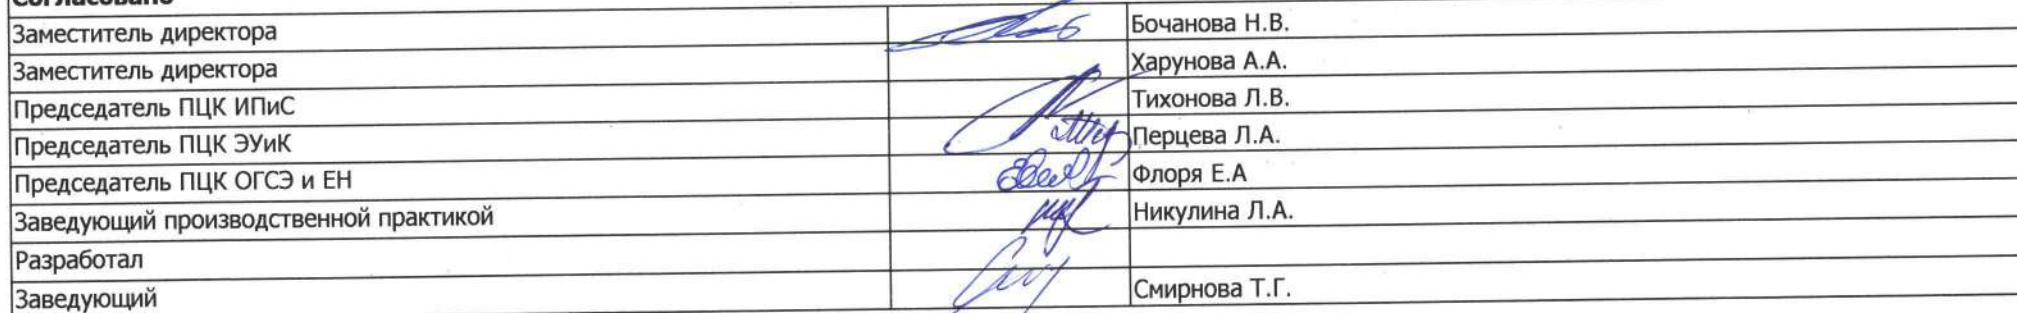 Согласовано
Заместитель директора Бочанова Н.В.
Заместитель директора Харунова А.А.
Председатель ПЦК ИПиС Тихонова Л.В.
Председатель ПЦК ЭУиК Перцева Л.А.
Председатель ПЦК ОГСЭ и ЕН Флоря Е.А
Заведующий производственной практикой Никулина Л.А.
Разработал
Заведующий Смирнова Т.Г.